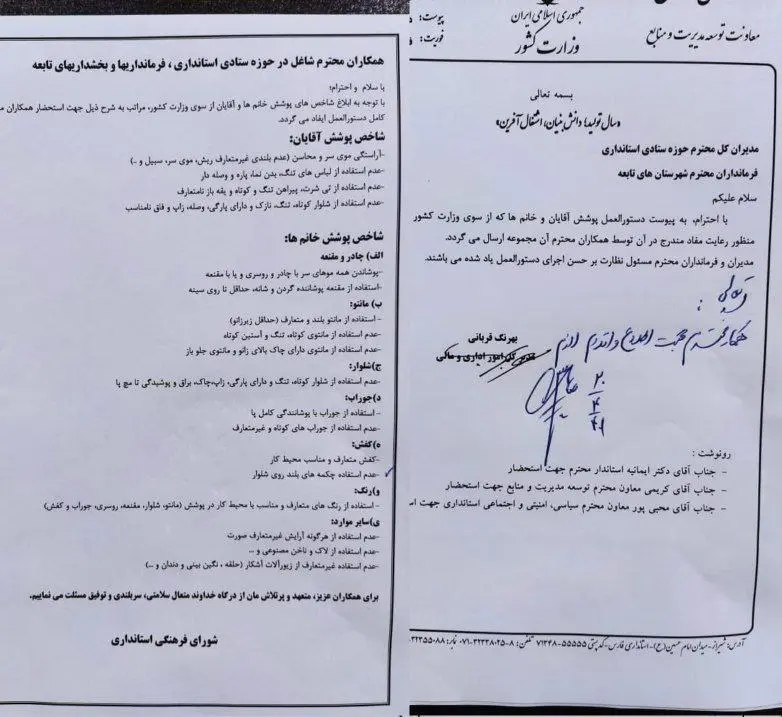 همکاران محترم شاغل در حوزه ستادی استانداری ، فرمانداریها و بخشداریهای تابعه
با سلام و احترام؛
با توجه به ابلاغ شاخص های پوشش خانم ها و آقایان از سوی وزارت کشور، مراتب به شرح ذیل جهت استحضار همکاران
کامل دستورالعمل ایفاد می گردد.
شاخص پوشش آقایان:
-آراستگی موی سر و محاسن (عدم بلندی غیرمتعارف ریش، موی سر، سبیل و ..)
-عدم استفاده از لباس های تنگ، بدن نما، پاره و وصله دار
-عدم استفاده از تی شرت، پیراهن تنگ و کوتاه و یقه باز نامتعارف
-عدم استفاده از شلوار کوتاه، تنگ، نازک و دارای پارگی، وصله، زاپ و فاق نامناسب
شاخص پوشش خانم ها:
الف) چادر و مقنعه
-پوشاندن همه موهای سر با چادر و روسری و یا با مقنعه
-استفاده از مقنعه پوشاننده گردن و شانه، حداقل تا روی سینه
ب) مانتو:
- استفاده از مانتو بلند و متعارف (حداقل زیرزانو)
-عدم استفاده از مانتوی کوتاه، تنگ و آستین کوتاه
-عدم استفاده از مانتوی دارای چاک بالای زانو و مانتوی جلو باز
ج)شلوار:
-عدم استفاده از شلوار کوتاه، تنگ و دارای پارگی، زاپ،چاک، براق و پوشیدگی تا مچ پا
د)جوراب:
- استفاده از جوراب با پوشانندگی کامل پا
-عدم استفاده از جوراب های کوتاه و غیرمتعارف
ه)کفش:
-کفش متعارف و مناسب محیط کار
-عدم استفاده چکمه های بلند روی شلوار
و)رنگ:
- استفاده از رنگ های متعارف و مناسب با محیط کار در پوشش (مانتو، شلوار، مقنعه، روسری، جوراب و کفش)
ی)سایر موارد:
-عدم استفاده از هرگونه آرایش غیرمتعارف صورت
-عدم استفاده از لاک و ناخن مصنوعی و ...
-عدم استفاده غیرمتعارف از زیورآلات آشکار (حلقه ، نگین بینی و دندان و ...)
برای همکاران عزیز، متعهد و پرتلاش مان از درگاه خداوند متعال سلامتی، سربلندی و توفیق مسئلت می نماییم.
شورای فرهنگی استانداری
جمهوری اسلامی ایران
وزارت کشور
معاونت توسعه مدیریت و منابع
پیوست:
فوریت:
بسمه تعالی
«سال تولید؛ دانش بنیان، اشتغال آفرین»
مدیران کل محترم حوزه ستادی استانداری
فرمانداران محترم شهرستان های تابعه
سلام علیکم
با احترام، به پیوست دستورالعمل پوشش آقایان و خانم ها که از سوی وزارت کشور
منظور رعایت مفاد مندرج در آن توسط همکاران محترم آن مجموعه ارسال می گردد.
مدیران و فرمانداران محترم مسئول نظارت بر حسن اجرای دستورالعمل یاد شده می باشند.
بهرنگ قربانی
مدیر کل امور اداری و مالی
همکاران محترم جهت اطلاع و اقدام لازم
رونوشت :
- جناب آقای دکتر ایمانیه استاندار محترم جهت استحضار
- جناب آقای کریمی معاون محترم توسعه مدیریت و منابع جهت استحضار
- جناب آقای محبی پور معاون محترم سیاسی، امنیتی و اجتماعی استانداری جهت
آدرس: شیراز-میدان امام حسین(ع)-استانداری فارس-کدپستی ۵۵۵۵۵-۷۱۳۴۸ تلفن: ۸-۳۲۳۳۸۰۲۵-۰۷۱ نمابر: ۳۲۳۵۵۰۸۸